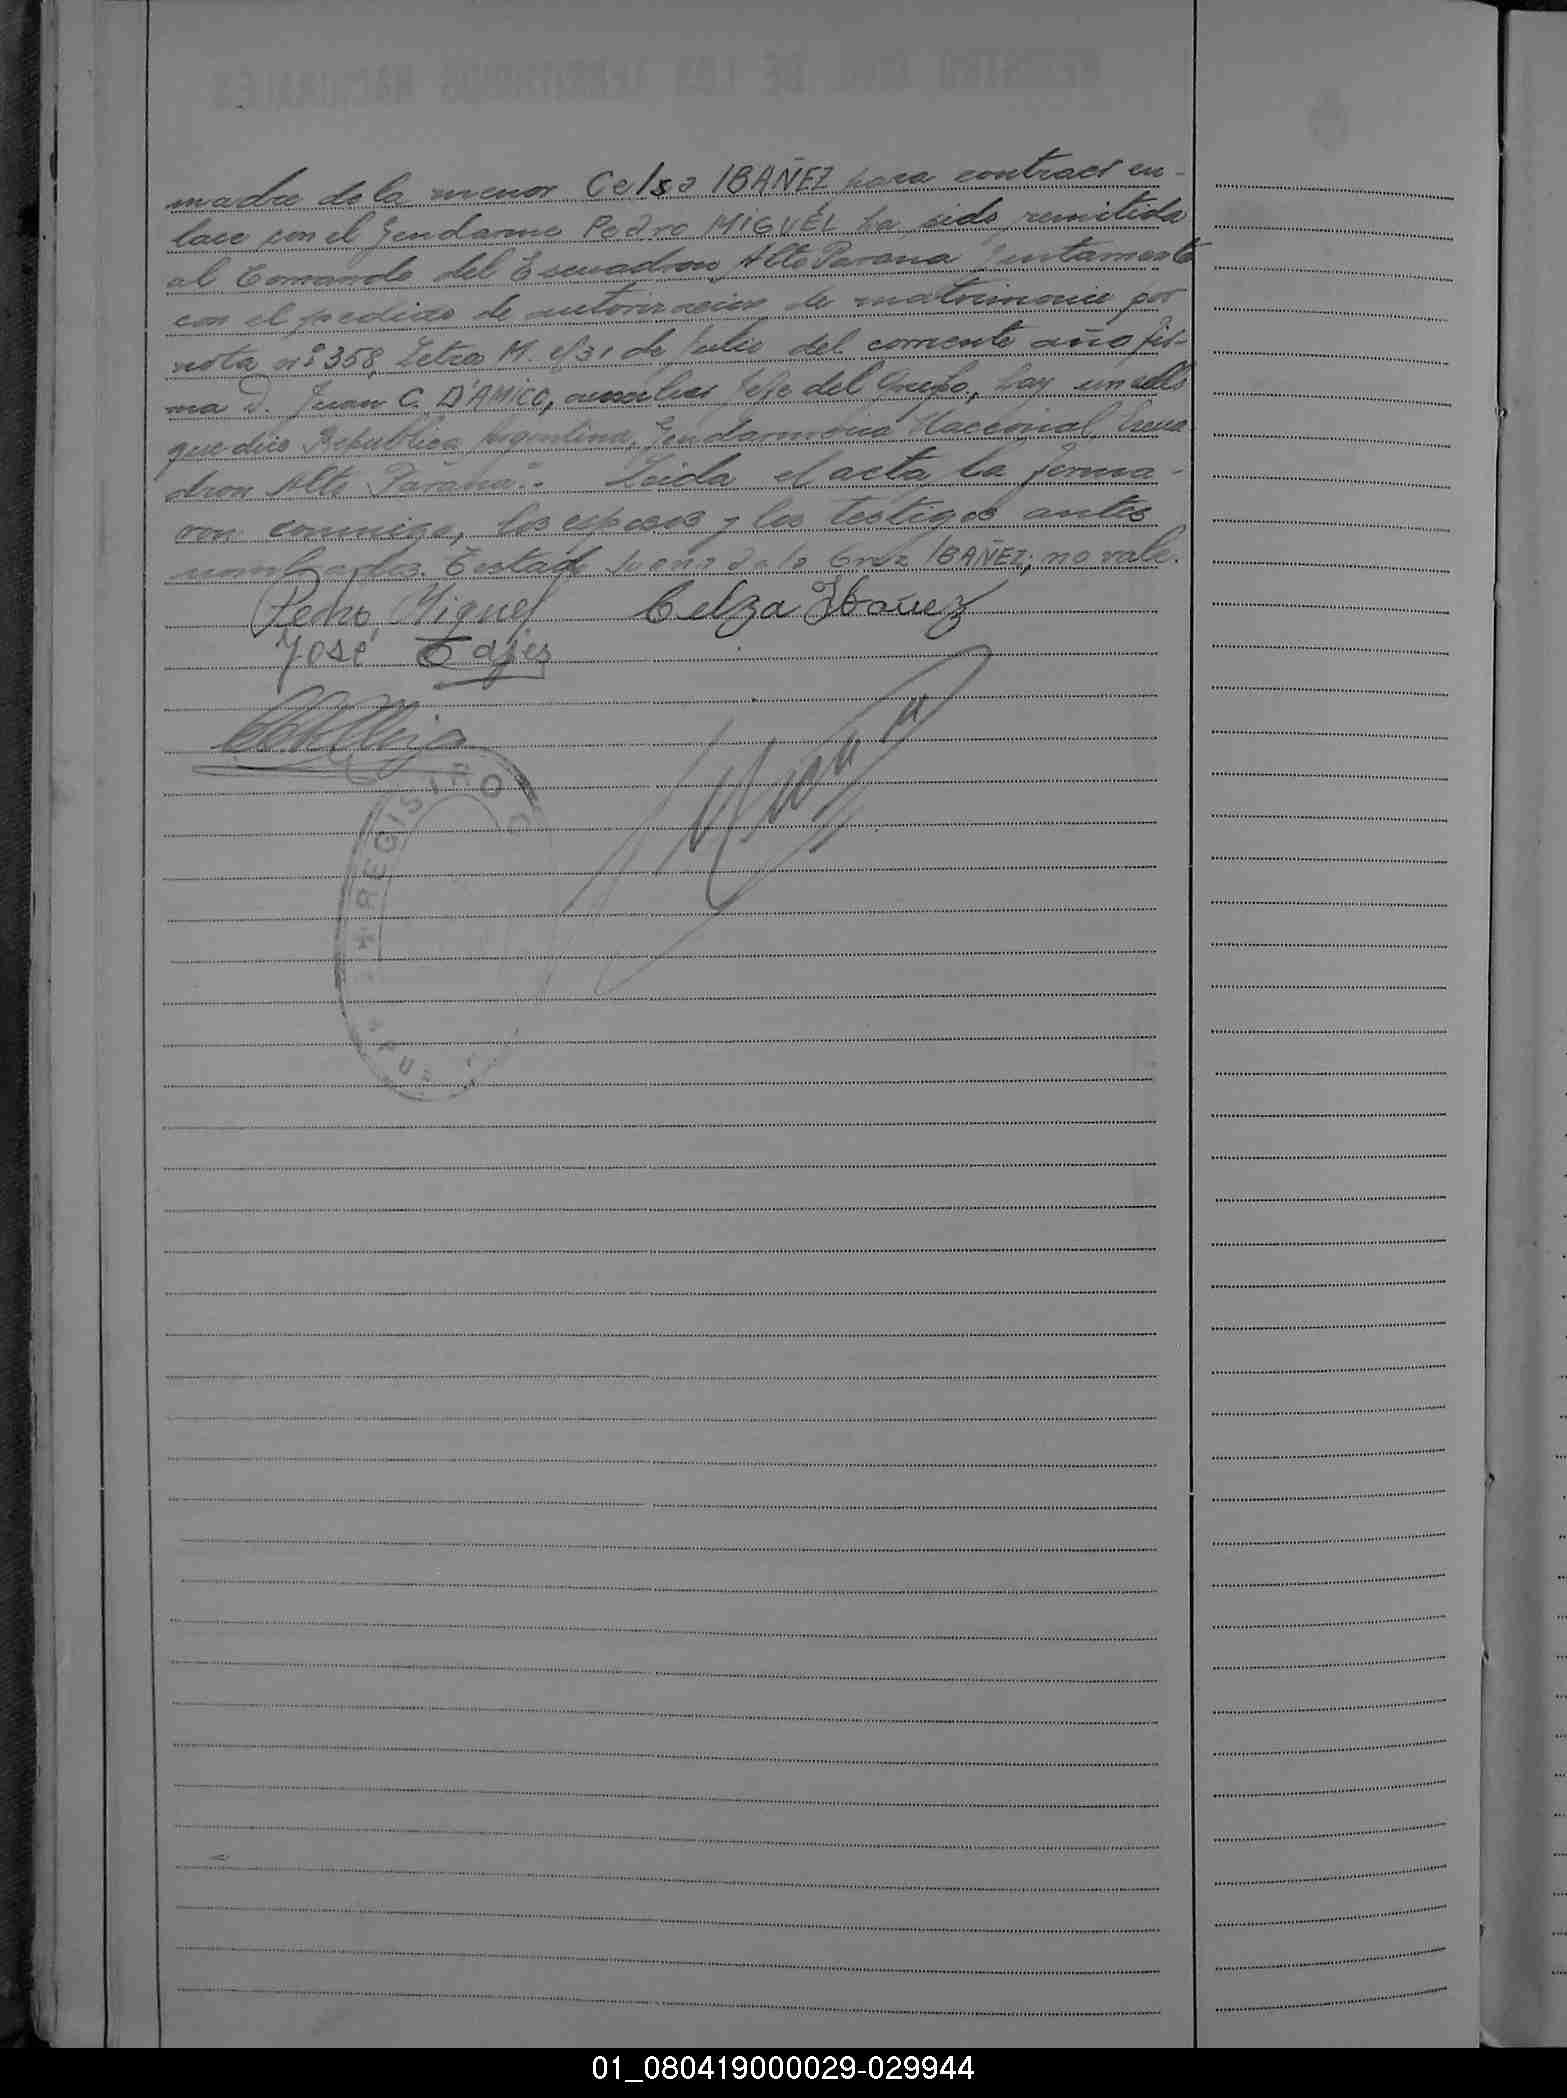 madre de la menor Celsa IBAÑEZ para contraer en-
lace con el Gendarme Pedro MIGUEL ha sido remitida
al Comando del Escuadron Alto Parana juntamente
con el pedido de autorización de matrimonio por
nota nº 358, Letra M. del 31 de Julio del corriente año fir-
ma D. Juan C. D'AMICO, auxiliar Jefe del Grupo, hay un sello
que dice Republica Argentina, Gendarmeria Nacional, Escua
dron Alto Parana".- Leida el acta, la firma-
ron conmigo, los esposos y los testigos antes
nombrados. Testado Juana de la Cruz IBAÑEZ; no vale.
Pedro Miguel Celza Ibañez
José
REGISTRO C
01_080419000029-029944